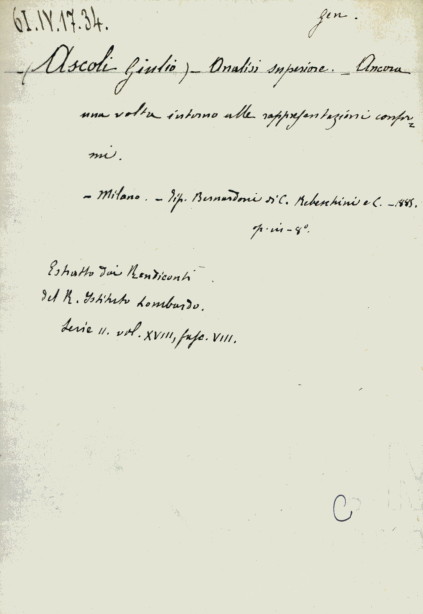 61.IV.17.34.
gen.
(Ascoli Giulio) – Analisi superiore. – Ancora
una volta intorno alle rappresentazioni confor-
mi.
– Milano. – Tip. Bernardoni di C. Rebeschini e C. – 1885.
op. in-8°.
Estratto dai Rendiconti
del R. Istituto Lombardo.
Serie II. vol. XVIII, fasc. VIII.
C